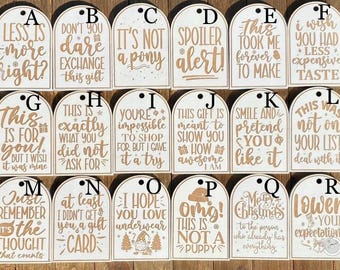 A
LESS IS
more
right?
B
DON'T YOU
dare
EXCHANGE
this gift
C
IT'S NOT
a pony
D
SPOILER
alert!
E
THIS
TOOK ME
forever
TO MAKE
F
i wish
YOU HAD
LESS
EXPENSIVE
TASTE
G
This
IS FOR
you!
BUT I WISH
IT WAS MINE
H
THIS IS
exactly
WHAT YOU
DID NOT
ASK FOR
I
YOU'RE
impossible
TO SHOP
FOR, BUT I GAVE
it a try
J
THIS GIFT IS
meant to
SHOW YOU
HOW
awesome
I AM
K
SMILE AND
pretend
YOU
like it
L
THIS WAS
not on
YOUR LIST
deal with it
M
Just
REMEMBER
IT'S the
THOUGHT
that counts
N
at least
I DIDN'T GET
you a gift
CARD
O
I HOPE
YOU LOVE
underwear
P
omg!
THIS IS
NOT A
PUPPY
Q
Merry
Christmas
to the person
who already has
everything
R
lower
YOUR
expectations